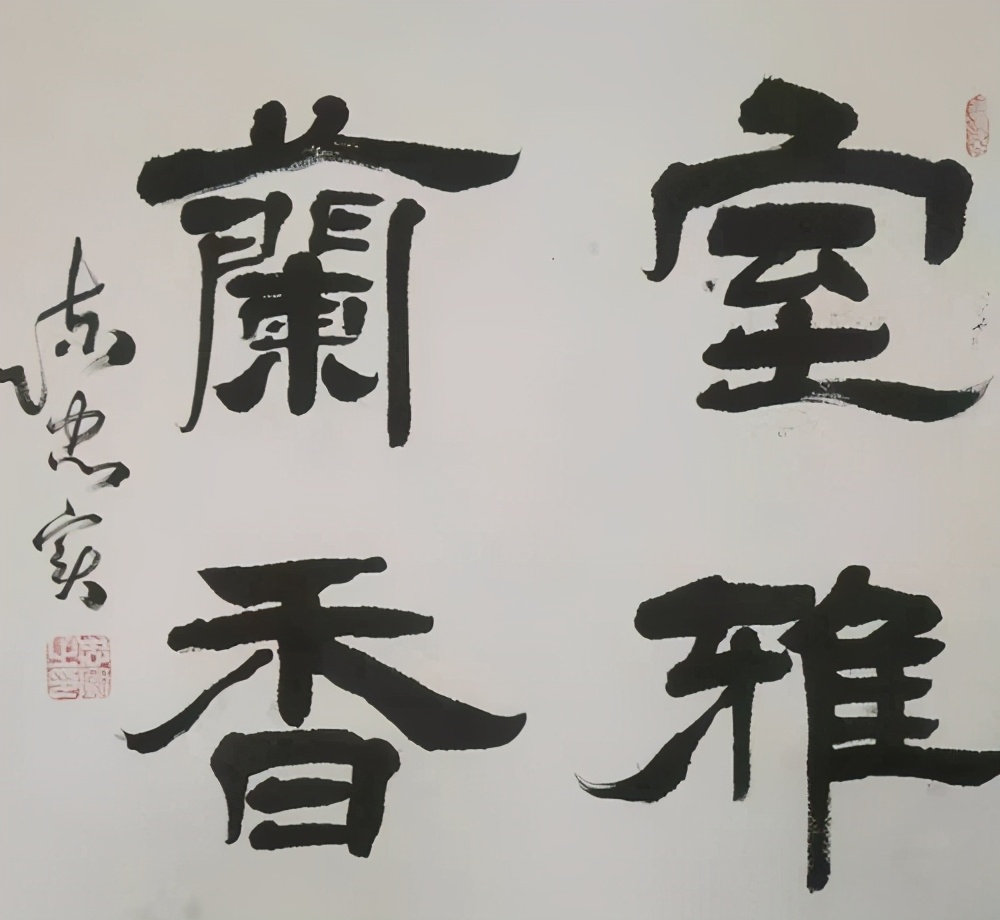 室雅
蘭香
忠實